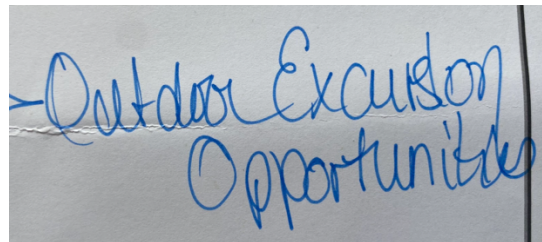 - Outdoor Excursion
Opportunities